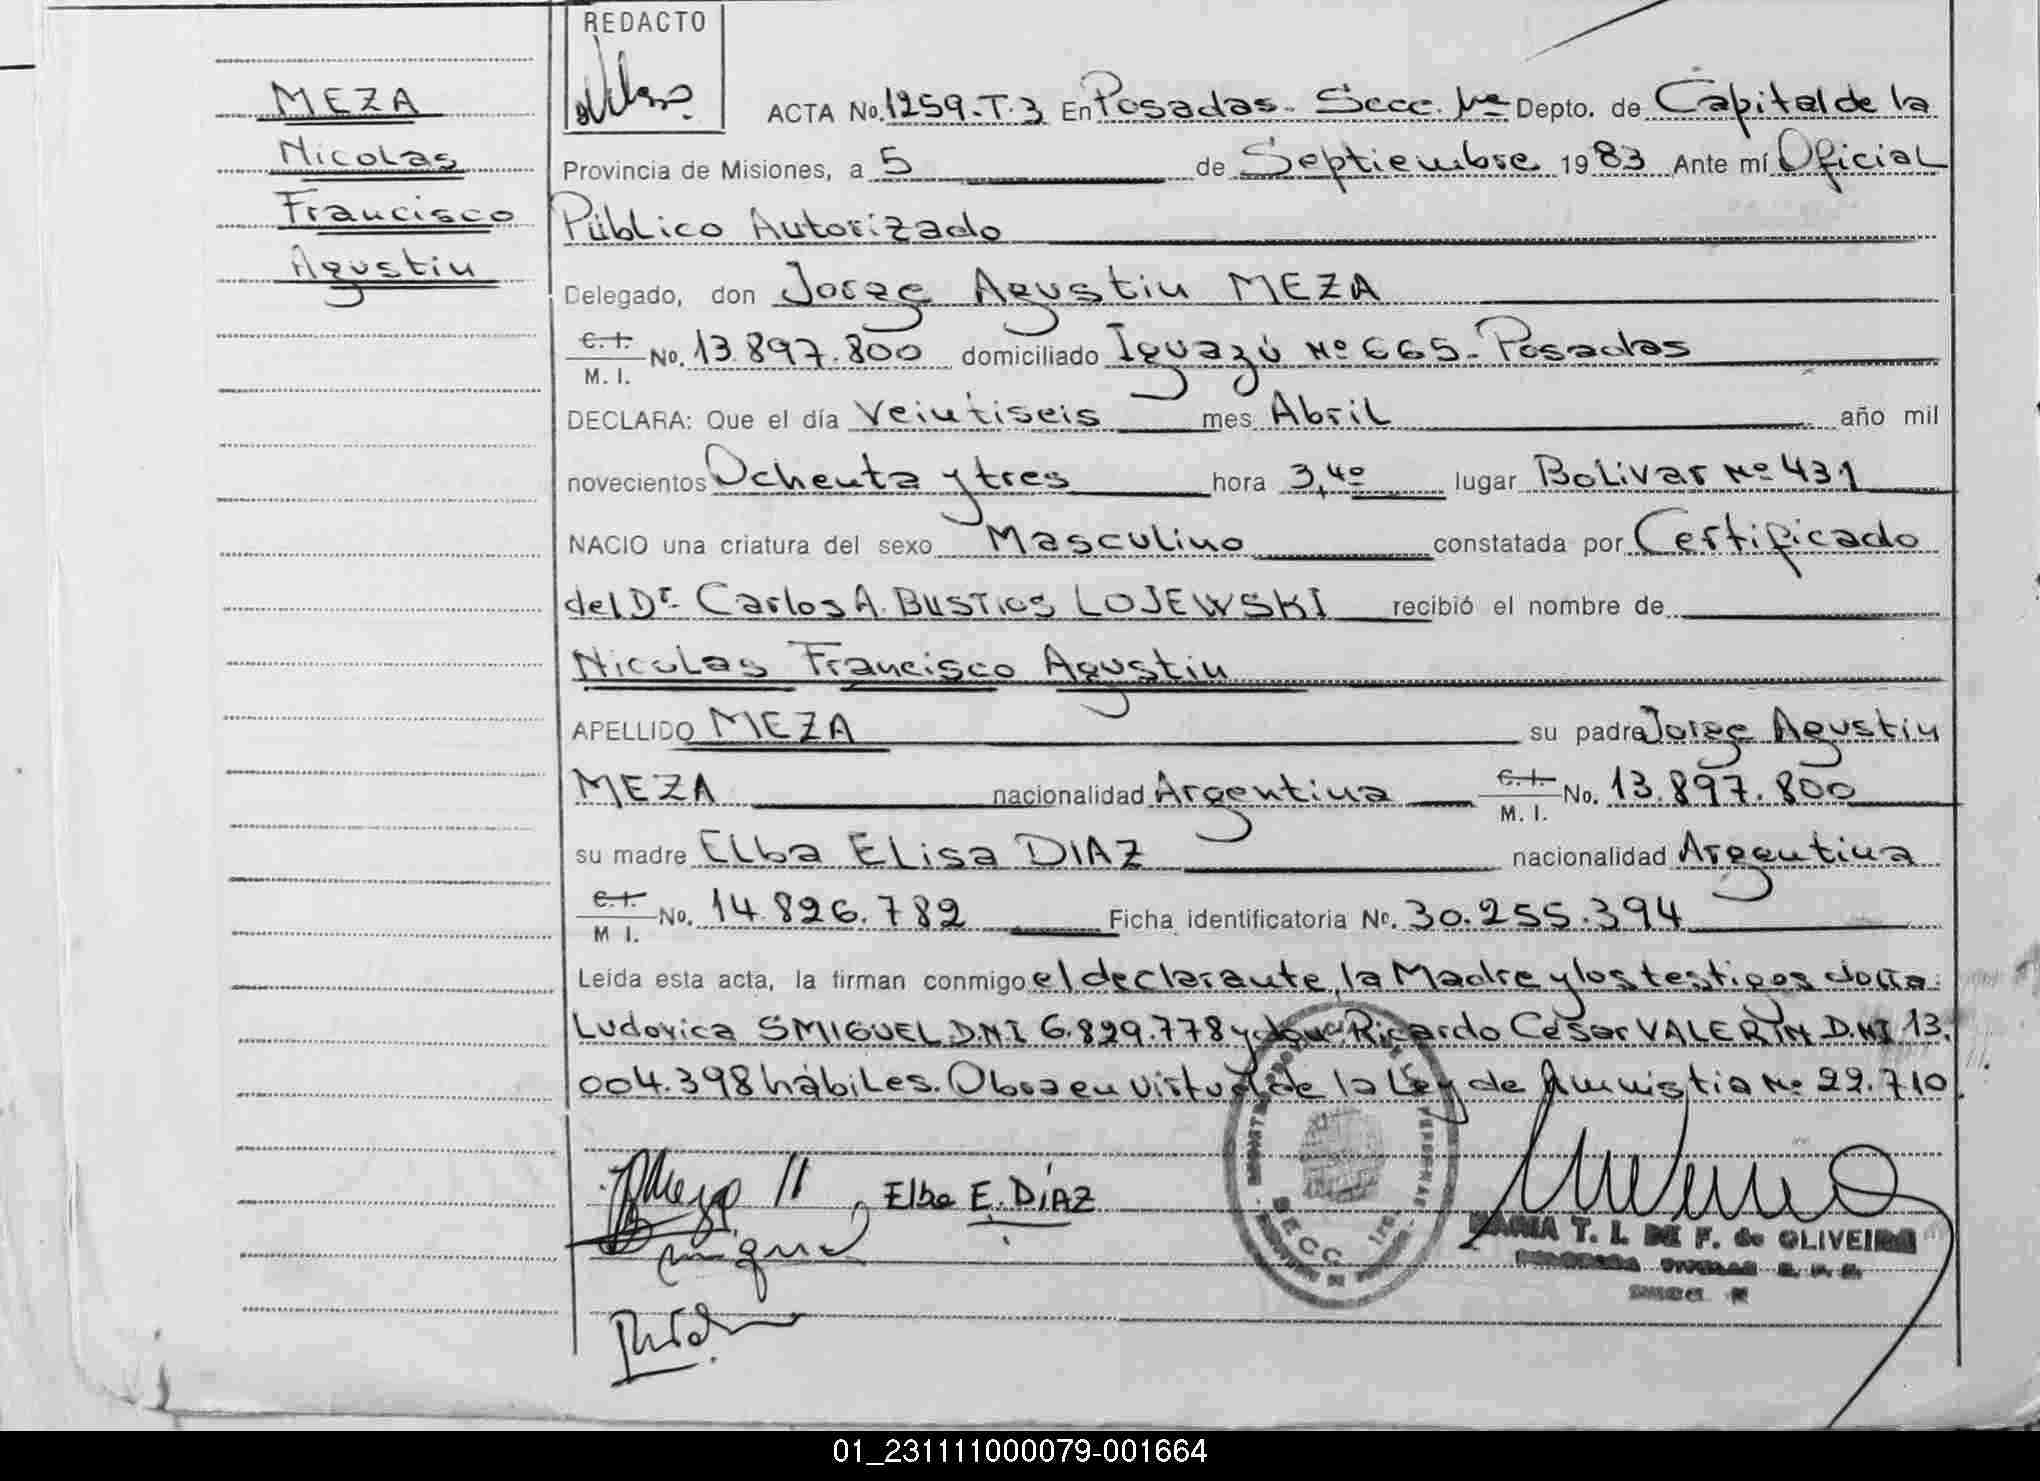 REDACTO
MEZA
Nicolas
Francisco
Agustin
ACTA No. 1259-T.3 En Posadas. Secc. 1ra Depto. de Capital de la
Provincia de Misiones, a 5 de Septiembre 1983 Ante mí Oficial
Público Autorizado
Delegado, don Jorge Agustin MEZA
C.I.
M. I. No. 13.897.800 domiciliado Iguazú No 665 - Posadas
DECLARA: Que el día Veintiseis mes Abril año mil
novecientos Ochenta y tres hora 3,40 lugar Bolivar No 431
NACIO una criatura del sexo Masculino constatada por Certificado
del Dr. Carlos A. BUSTIOS LOJEWSKI recibió el nombre de
Nicolas Francisco Agustin
APELLIDO MEZA su padre Jorge Agustin
MEZA nacionalidad Argentina C.I.
M. I. No. 13.897.800
su madre Elba Elisa DIAZ nacionalidad Argentina
C.I.
M I. No. 14.826.782 Ficha identificatoria No. 30.255.394
Leída esta acta, la firman conmigo el declarante, la Madre y los testigos doña:
Ludovica SMIGUEL D.N.I 6.829.778 y don: Ricardo César VALERIN D.NI 13.
004.398 hábiles. Obra en virtud de la Ley de Amnistia No 22.710
Elba E. DÍAZ
SECC. 1ra.
MARIA T. I. DE F. de OLIVEIRA
01_231111000079-001664